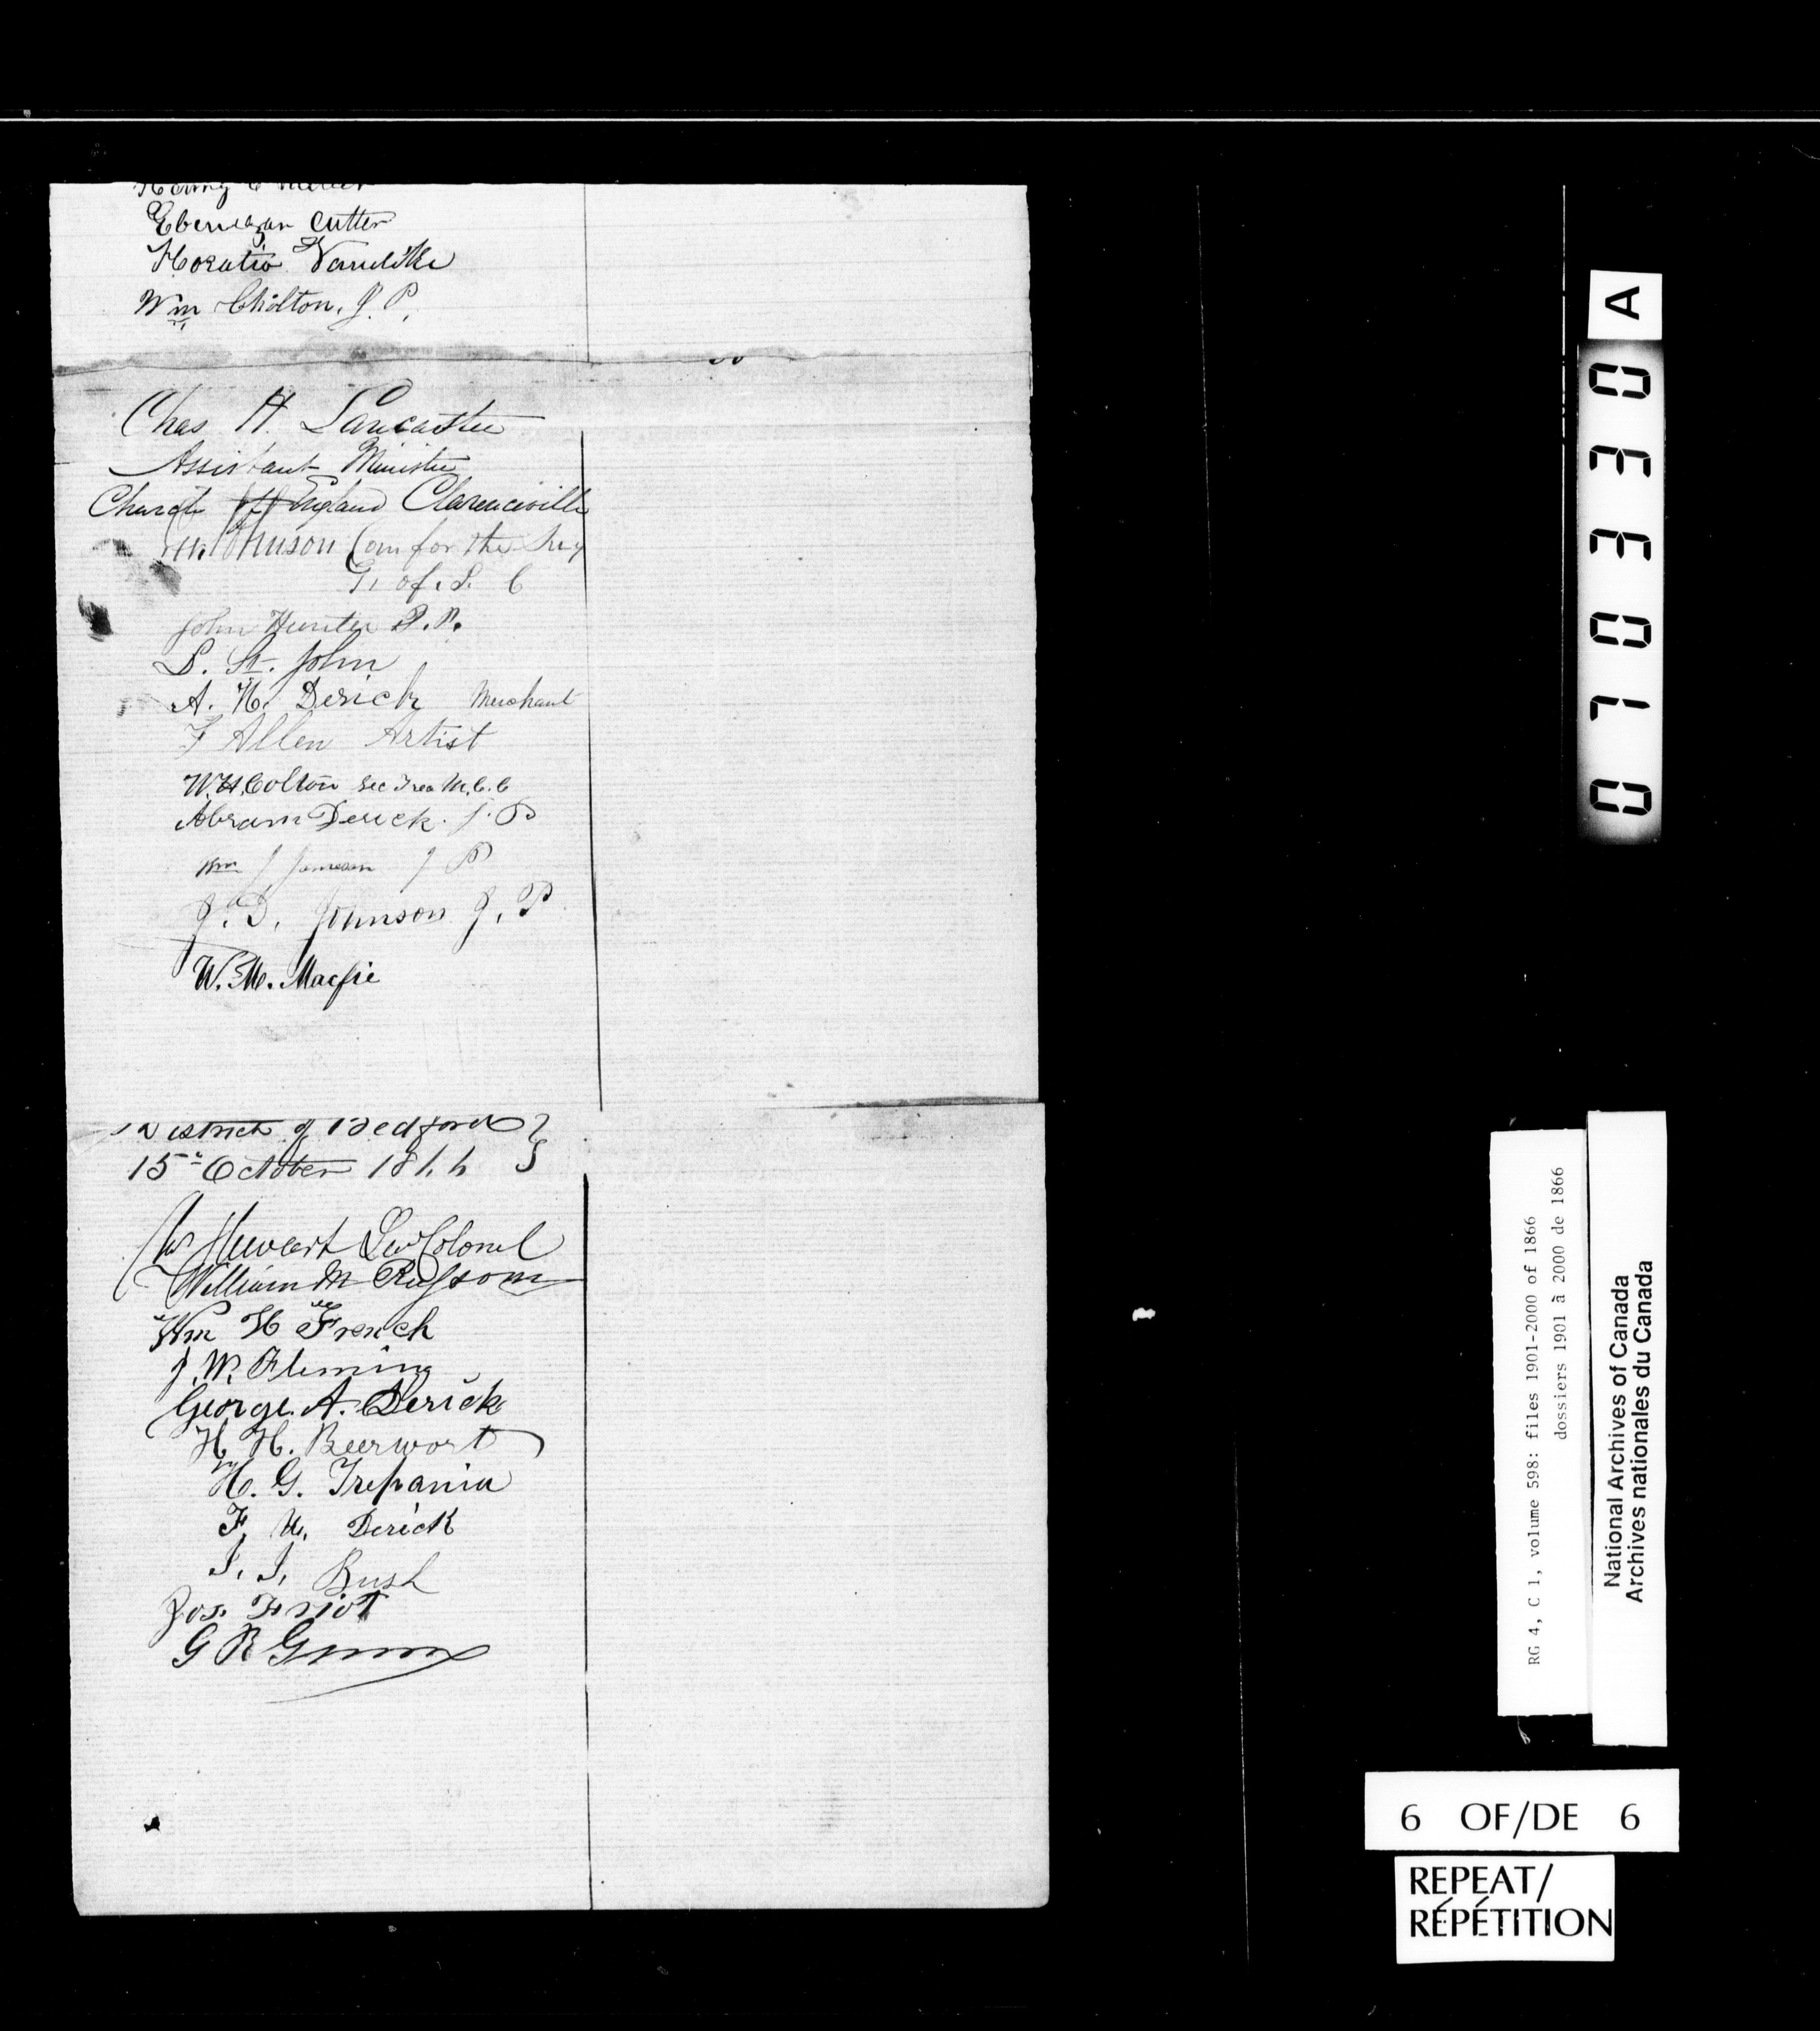 Ebenezar Cutter
Horatio Vandike
Wm Chilton, J. P.
Chas H. Lancaster
Assistant Minister
Church of England Clarenceville
Johnson Com for the
G. of. S. C
John Hunter P.P.
S. St. John
A. H. Derick Merchant
F Allen Artist
W.H. Colton Sec Trea M.C.C
Abram Derick. J. P
Wm J Jameson J P
J. D. Johnson J. P
W. M. Macfie
District of Bedford
15th October 1866
Hewart Lt Colonel
William M
Wm H French
J. W. Fleming
George. A. Derick
H. H. Beerwort
H. G. Trepanier
F. H. Derick
J. J. Bush
Jos. Friot
G R
A
071033 0
RG 4, C 1, volume 598: files 1901-2000 of 1866
dossiers 1901 à 2000 de 1866
National Archives of Canada
Archives nationales du Canada
6 OF/DE 6
REPEAT/
RÉPÉTITION